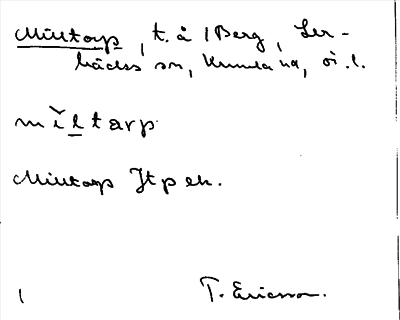 Miltorp, t. å 1 Berg, Ler-
bäcks sn, Kumla hd, ö.l.
mĭltarp
Miltorp Jtpek.
1
T. Ericsson.